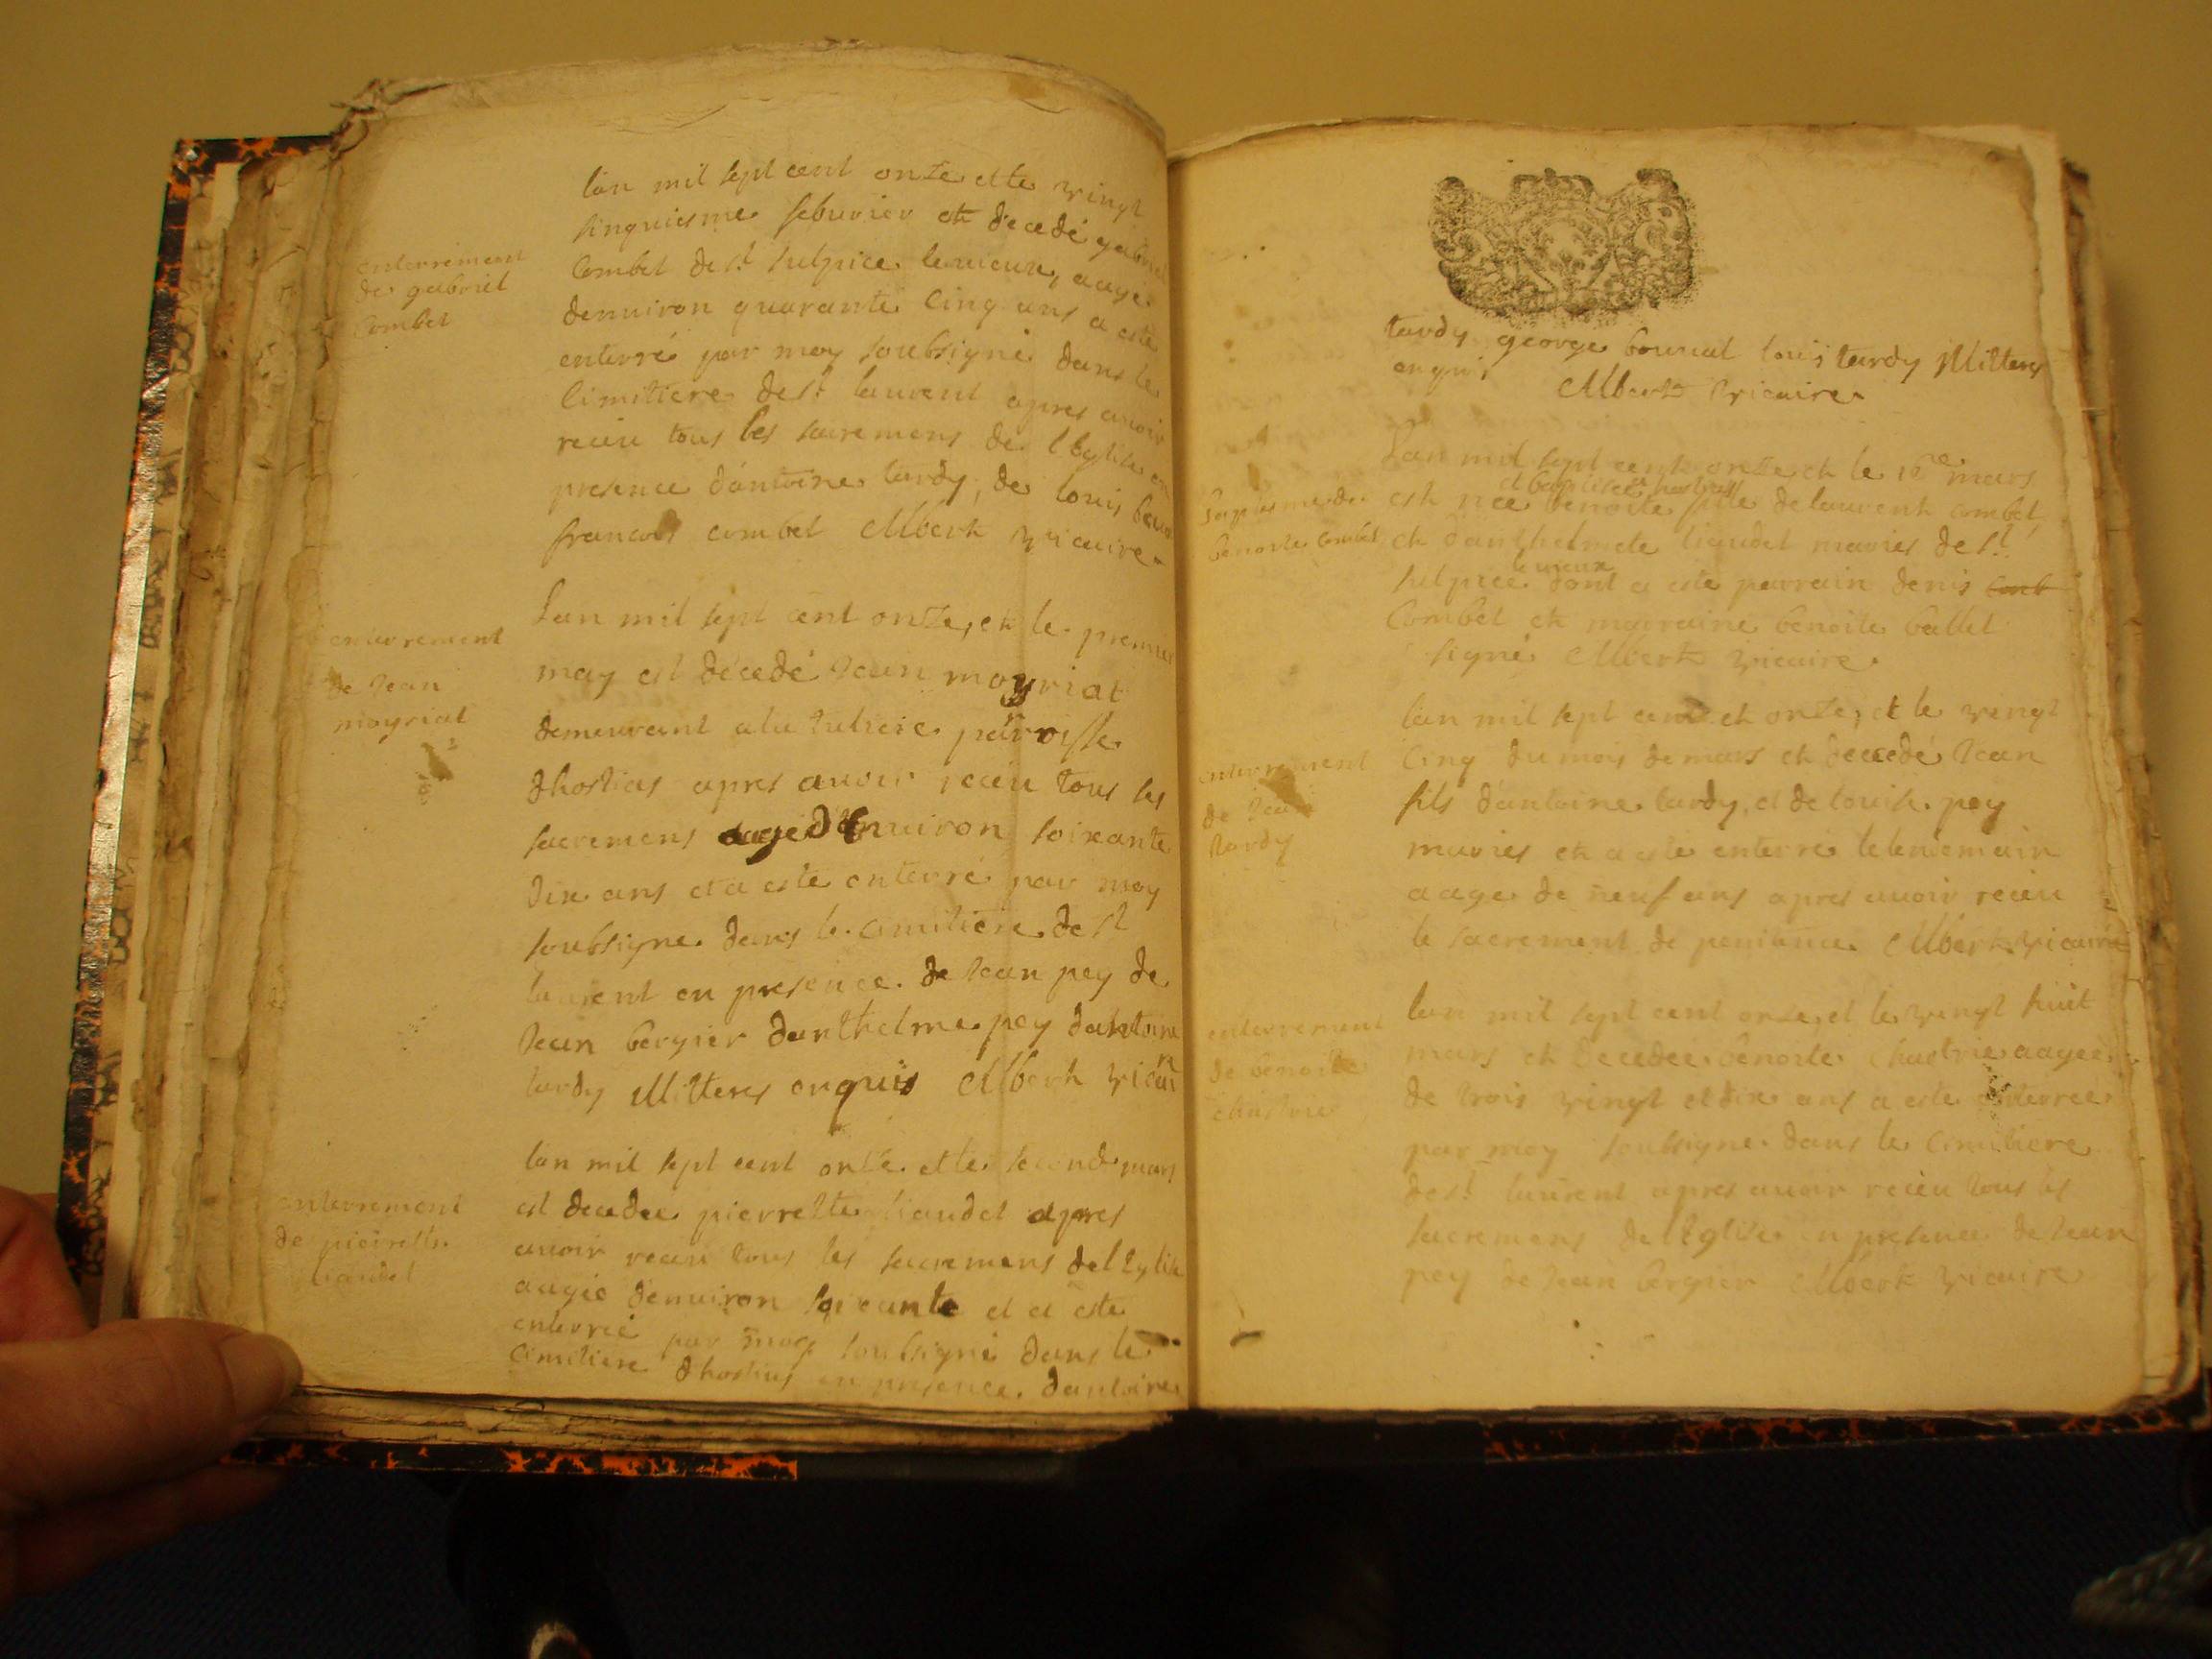 enterrement
de gabriel
Combet
lan mil sept cent onze et le vingt
sinquiesme feburier est décédé gabriel
Combet de st sulpice le vieux, aagé
denuiron quarante cinq ans a esté
enterré par moy soubsigné dans le
Cimitiere de st laurent apres auoir
receu tous les sacremens de l Eglise en
presence dantoine tardy, de louis
francois combet Mbert vicaire
enterrement
de Jean
moyriat
Lan mil sept cent onze, et le premier
may est décédé Jean moyriat
demeurant a la parroisse
dhostias apres auoir receu tous les
sacremens aagé denuiron soixante
dix ans et a esté enterré par moy
soubsigné dans le cimitiere de st
laurent en presence de Jean pey de
Jean bergier danthelme pey dantoine
tardy illitterés enquis Mbert vicair
enterrement
de pierrette
liaudet
lan mil sept cent onze et le second mars
est decedee pierrette liaudet apres
auoir receu tous les sacremens de l Eglise
aagée denuiron soixante et a esté
enterrée par moy soubsigné dans le
cimitiere dhostias en presence dantoine
tardy george bounat louis tardy illitterés
enquis Mbert vicaire
baptesme de
benoite combet
Lan mil sept cent onze et le 16e mars
est née et baptisée benoite fille de laurent combet
et danthelmete liaudet mariés de st
sulpice le vieux dont a esté parrain denis
Combet et marraine benoite ballet
signé Mbert vicaire
enterrement
de Jean
tardy
lan mil sept cent et onze, et le vingt
cinq du mois de mars est decedé Jean
fils dantoine tardy, et de louise pey
mariés et a esté enterré le lendemain
aagé de neuf ans apres auoir receu
le sacrement de penitence Mbert vicaire
enterrement
de benoite
chastrie
lan mil sept cent onze, et le vingt huit
mars est decedée benoite chastrie aagée
de trois vingt et dix ans a esté enterrée
par moy soubsigné dans le cimitiere
de st laurent apres auoir receu tous les
sacremens de l Eglise en presence de Jean
pey de Jean bergier Mbert vicaire